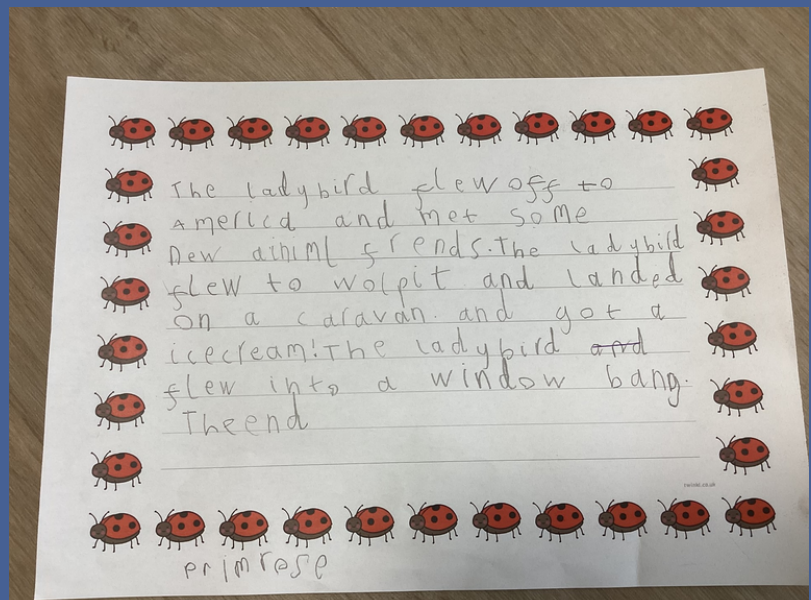 The ladybird flew off to
America and met some
new ainiml frends. The ladybird
flew to wolpit and landed
on a caravan. and got a
icecream! The ladybird and
flew into a window bang.
The end
primrose